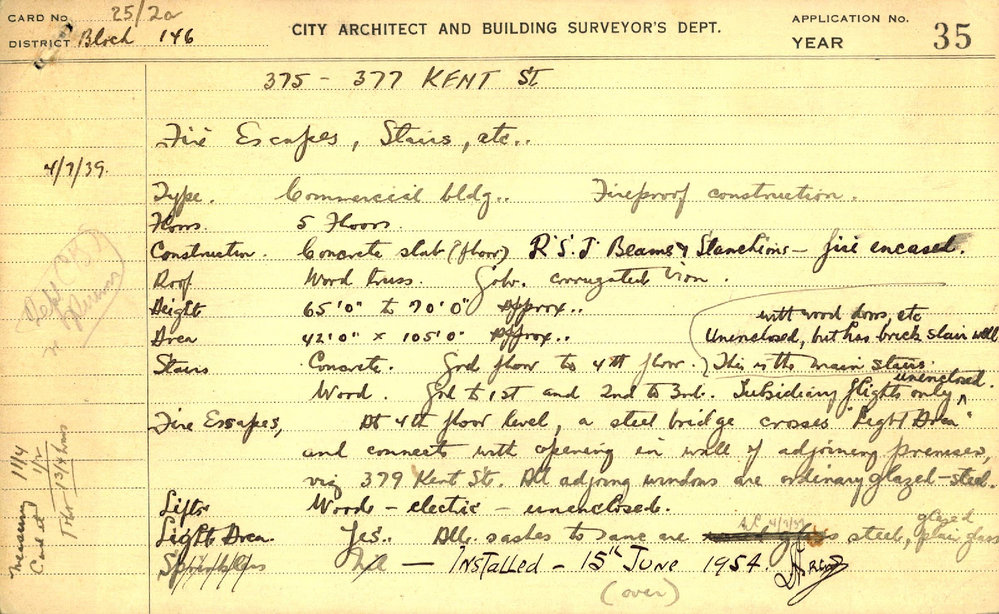 CARD No 25/2a
CITY ARCHITECT AND BUILDING SURVEYOR'S DEPT.
APPLICATION No.
DISTRICT Block 146
YEAR
35
375 - 377 KENT ST
Fire Escapes, Stairs, etc..
4/7/39.
Type. Commercial bldg.. Fireproof construction.
Floors 5 Floors.
Construction. Concrete slab (floor) R.S.J Beams & Stanchions - fire encased.
Roof Wood truss. Galv. corrugated iron.
Height 65'0" to 70'0" Approx..
with wood doors, etc
Area 42'0" x 105'0" Approx..
Unenclosed, but has brick stair well
Stairs Concrete. Grd floor to 4th floor. (This is the main stairs.
Wood. Grd to 1st and 2nd to 3rd. Subsidiary flights only unenclosed.
Fire Escapes, At 4th floor level, a steel bridge crosses "Light Area"
and connects with opening in wall of adjoining premises,
viz 379 Kent St. All adjoing windows are ordinary glazed-steel.
Lifts Wood - electric - unenclosed.
Light Area. Yes. All sashes to same are steel, glazed plain glass
4/7/39
Sprinklers Nil - INSTALLED - 15th JUNE 1954.
(over)
Measuring 1 1/4
Card etc 1/2
Total 1 3/4 hours